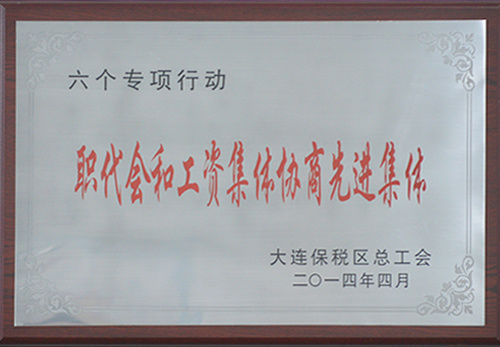 六个专项行动
职代会和工资集体协商先进集体
大连保税区总工会
二〇一四年四月